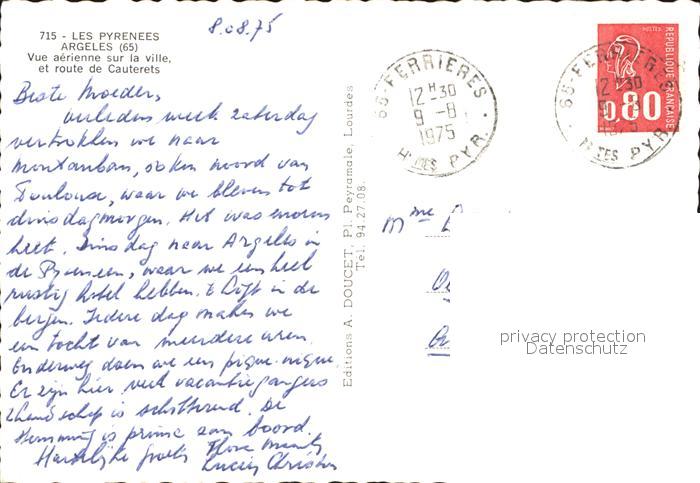 8.08.75
715 - LES PYRENEES
ARGELES (65)
Vue aérienne sur la ville,
et route de Cauterets
Beste Moeder,
verleden week zaterdag
vertrokken we naar
Montauban, 50 km noord van
Toulouse, waar we bleven tot
dinsdagmorgen. Het was enorm
heet. Dinsdag naar Argelès in
de Pyreneen, waar we een heel
rustig hotel hebben. 't Ligt in de
bergen. Iedere dag maken we
een tocht van meerdere uren.
Onderweg doen we een pique-nique.
Er zijn hier veel vacantiegangers
't landschap is schitterend. De
stemming is prima aan boord.
Hartelijke groeten
Lucien Christine
Editions A. DOUCET, Pl. Peyramale, Lourdes
Tél. 94.27.08.
65-FERRIERES
12 H 30
9 -8
1975
Htes PYR.
POSTES
REPUBLIQUE FRANÇAISE
0,80
65-FERRIERES
12 H 30
Htes PYR.
Mme
privacy protection
Datenschutz